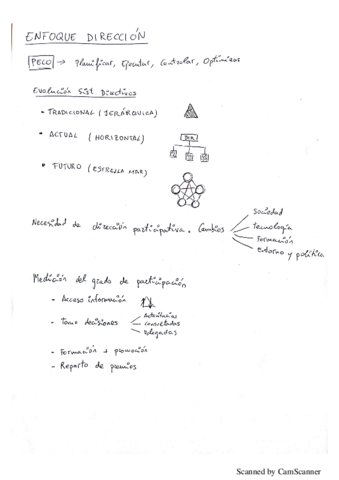 ENFOQUE DIRECCIÓN
PECO → Planificar, Ejecutar, Controlar, Optimizar
Evolución Sist Directivos
• TRADICIONAL (JERÁRQUICA)
• ACTUAL (HORIZONTAL)
• FUTURO (ESTRELLA MAR)
Necesidad de dirección participativa. Cambios
Sociedad
Tecnología
Formación
Entorno y política
Medición del grado de participación
- Acceso información
- Toma decisiones
Autoritarias
Consultadas
Delegadas
- Formación + promoción
- Reparto de premios
Scanned by CamScanner